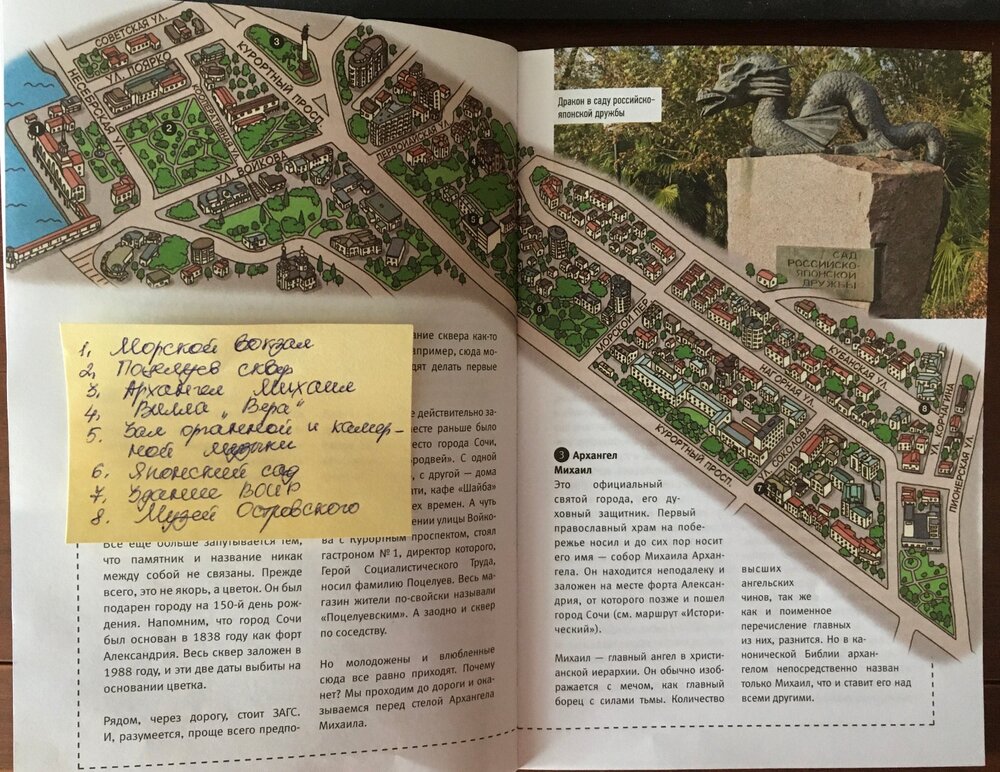 СОВЕТСКАЯ УЛ.
НЕСЕБРСКАЯ УЛ.
УЛ. ПОЯРКО
КУРОРТНЫЙ ПРОСП.
УЛ. ВОЙКОВА
1
2
3
4
5
Дракон в саду российско-
японской дружбы
САД
РОССИЙСКО-
ЯПОНСКОЙ
ДРУЖБЫ
6
МОРСКОЙ ПЕР.
КУБАНСКАЯ УЛ.
НАГОРНАЯ УЛ.
КУРОРТНЫЙ ПРОСП.
УЛ. СОКОЛОВА
УЛ. КОРЧАГИНА
ПИОНЕРСКАЯ УЛ.
7
8
1, Морской вокзал
2, Поцелуев сквер
3, Архангел Михаил
4, "Вилла „Вера"
5, Зал органной и камер-
ной музыки
6, Японский сад
7, Здание ВОИР
8, Музей Островского
ание сквера как-то
апример, сюда мо-
дят делать первые
е действительно за-
месте раньше было
есто города Сочи,
одвей»). С одной
, с другой — дома
ати, кафе «Шайба»
ех времен. А чуть
ении улицы Войко-
Все еще больше запутывается тем,
что памятник и название никак
между собой не связаны. Прежде
всего, это не якорь, а цветок. Он был
подарен городу на 150-й день рож-
дения. Напомним, что город Сочи
был основан в 1838 году как форт
Александрия. Весь сквер заложен в
1988 году, и эти две даты выбиты на
основании цветка.
Рядом, через дорогу, стоит ЗАГС.
И, разумеется, проще всего предпо-
ва с Курортным проспектом, стоял
гастроном №1, директор которого,
Герой Социалистического Труда,
носил фамилию Поцелуев. Весь ма-
газин жители по-свойски называли
«Поцелуевским». А заодно и сквер
по соседству.
Но молодожены и влюбленные
сюда все равно приходят. Почему
нет? Мы проходим до дороги и ока-
зываемся перед стелой Архангела
Михаила.
3 Архангел
Михаил
Это официальный
святой города, его ду-
ховный защитник. Первый
православный храм на побе-
режье носил и до сих пор носит
его имя — собор Михаила Архан-
гела. Он находится неподалеку и
заложен на месте форта Алексан-
дрия, от которого позже и пошел
город Сочи (см. маршрут «Истори-
ческий»).
Михаил — главный ангел в христи-
анской иерархии. Он обычно изо-
бражается с мечом, как главный
борец с силами тьмы. Количество
высших
ангельских
чинов, так же
как и поименное
перечисление главных
из них, разнится. Но в ка-
нонической Библии архан-
гелом непосредственно назван
только Михаил, что и ставит его над
всеми другими.